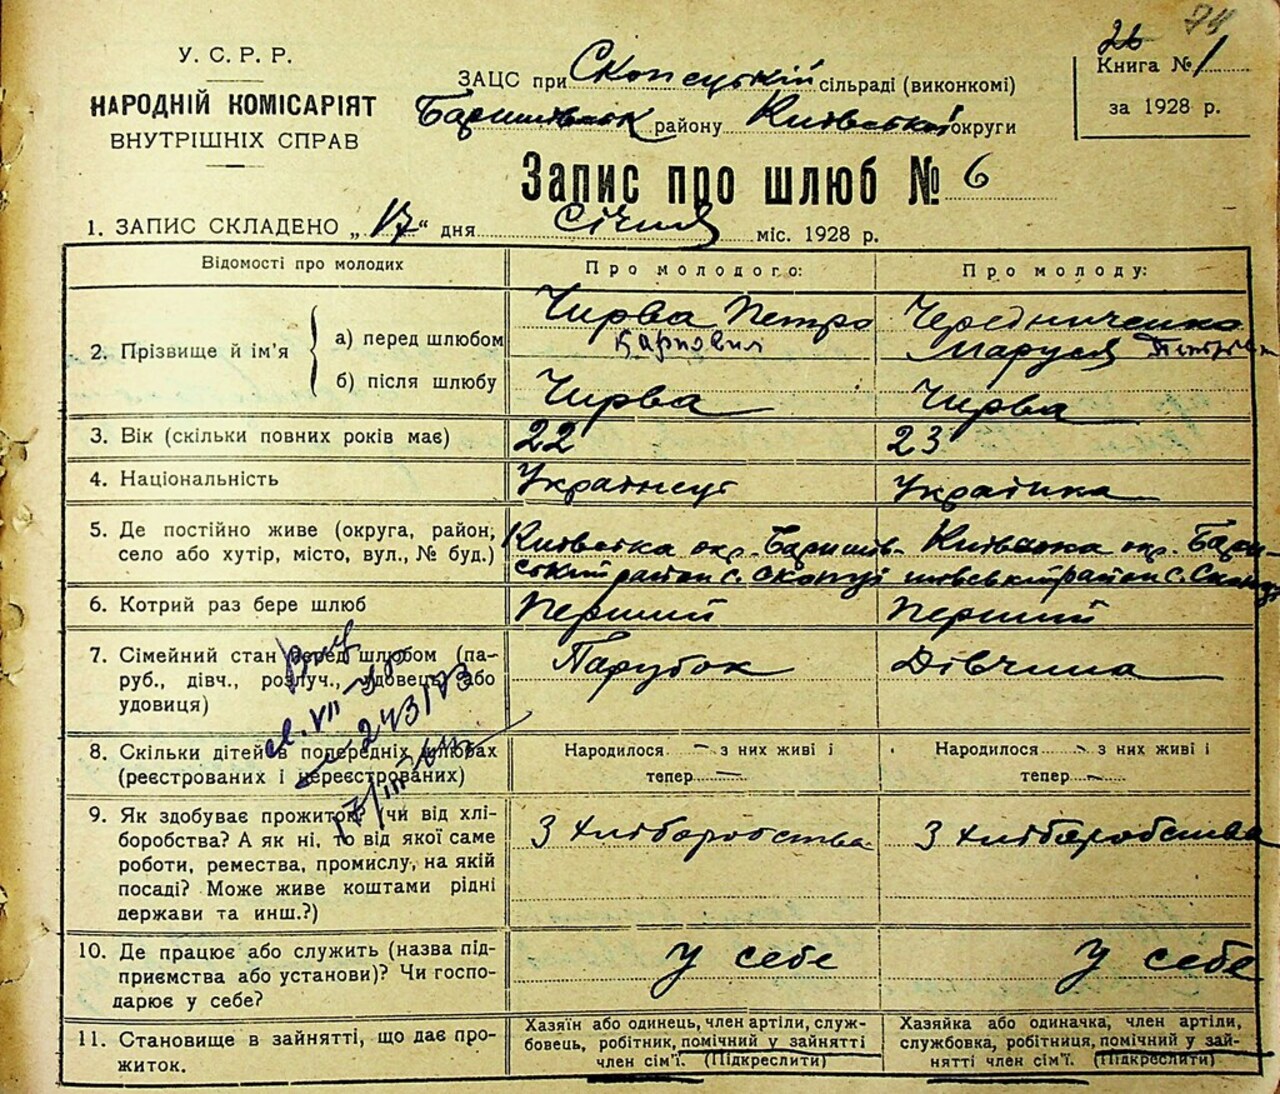 74
26
У. С. Р. Р.
НАРОДНІЙ КОМІСАРІЯТ
ВНУТРІШНІХ СПРАВ
ЗАЦС при Скопецькій сільраді (виконкомі)
Баришівськ району Київської округи
Книга № 1
за 1928 р.
Запис про шлюб № 6
1. ЗАПИС СКЛАДЕНО „17“ дня Січня міс. 1928 р.
Відомості про молодих
Про молодого:
Про молоду:
2. Прізвище й ім'я
а) перед шлюбом
Чирва Петро
Карпович
Чередниченко
Маруся
б) після шлюбу
Чирва
Чирва
3. Вік (скільки повних років має)
22
23
4. Національність
Українець
Українка
5. Де постійно живе (округа, район, село або хутір, місто, вул., № буд.)
Київська окр. Баришів-
ський район с. Скопці
Київська окр. Бари-
шівський район с. Скопці
6. Котрий раз бере шлюб
Перший
Перший
7. Сімейний стан перед шлюбом (па-
руб., дівч., розлуч., удовець або
удовиця)
Парубок
Дівчина
8. Скільки дітей в попередніх шлюбах
(реєстрованих і нереєстрованих)
Народилося — з них живі і
тепер —
Народилося — з них живі і
тепер —
9. Як здобуває прожиток? (чи від хлі-
боробства? А як ні, то від якої саме
роботи, ремества, промислу, на якій
посаді? Може живе коштами рідні
держави та инш.?)
З хліборобства
З хліборобства
10. Де працює або служить (назва під-
приємства або установи)? Чи госпо-
дарює у себе?
У себе
У себе
11. Становище в зайнятті, що дає про-
житок.
Хазяїн або одинець, член артілі, служ-
бовець, робітник, помічний у зайнятті
член сім'ї. (Підкреслити)
Хазяйка або одиначка, член артілі,
службовка, робітниця, помічний у зай-
нятті член сім'ї. (Підкреслити)